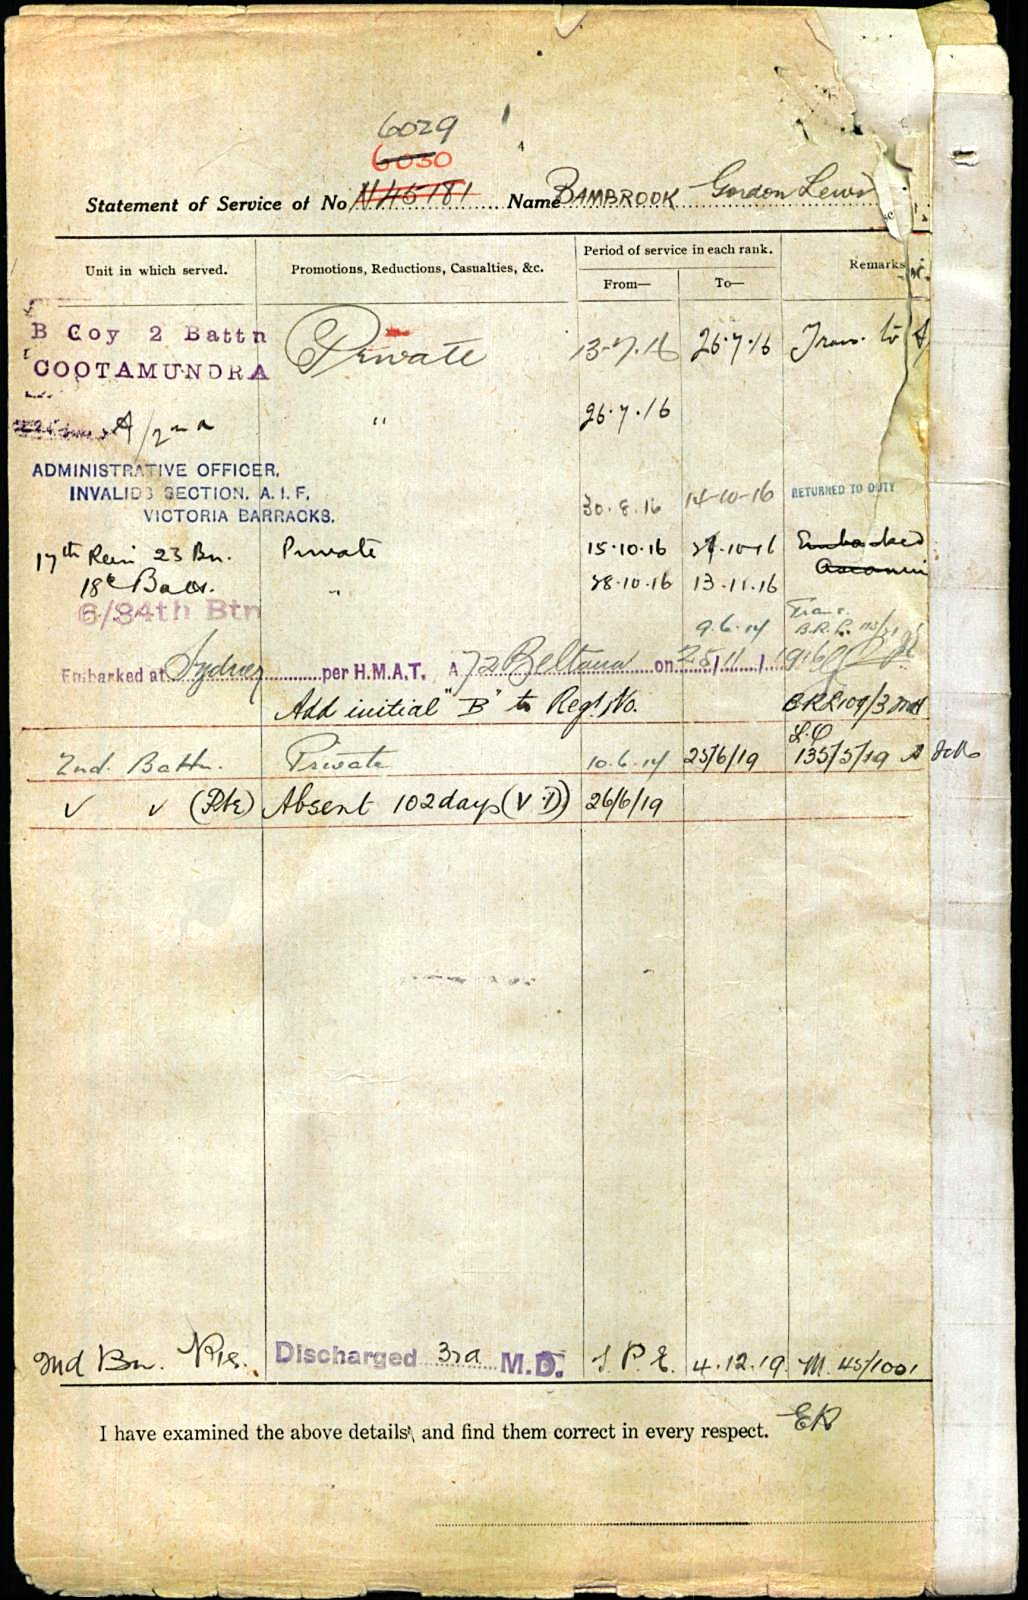 6029
6030
4
Statement of Service of No N45181 Name BAMBROOK Gordon Lewis
Unit in which served. Promotions, Reductions, Casualties, &c. Period of service in each rank. Remarks
From— To—
B Coy 2 Battn Private 13-7-16 26.7.16 Trans. to A/
COOTAMUNDRA
A/2nd " 26.7.16
ADMINISTRATIVE OFFICER,
INVALIDS SECTION, A.I.F, 30.8.16 14-10-16 RETURNED TO DUTY
VICTORIA BARRACKS.
17th Rein 23 Bn. Private 15.10.16 27-10-16 Embarked
Ascanius
18th Batn. " 28.10.16 13.11.16
6/34th Btn 9.6.17 Trans.
Embarked at Sydney per H.M.A.T. A 72 Beltana on 25/11/1916
Add initial "B" to Regt. No. BRR109/3
2nd. Battn. Private 10.6.17 25/6/19 135/5/19
✓ ✓ (Pte) Absent 102 days (V.D) 26/6/19
2nd Bn. Pte. Discharged 3rd M.D. T.P.E. 4.12.19. M.45/1001
I have examined the above details, and find them correct in every respect.